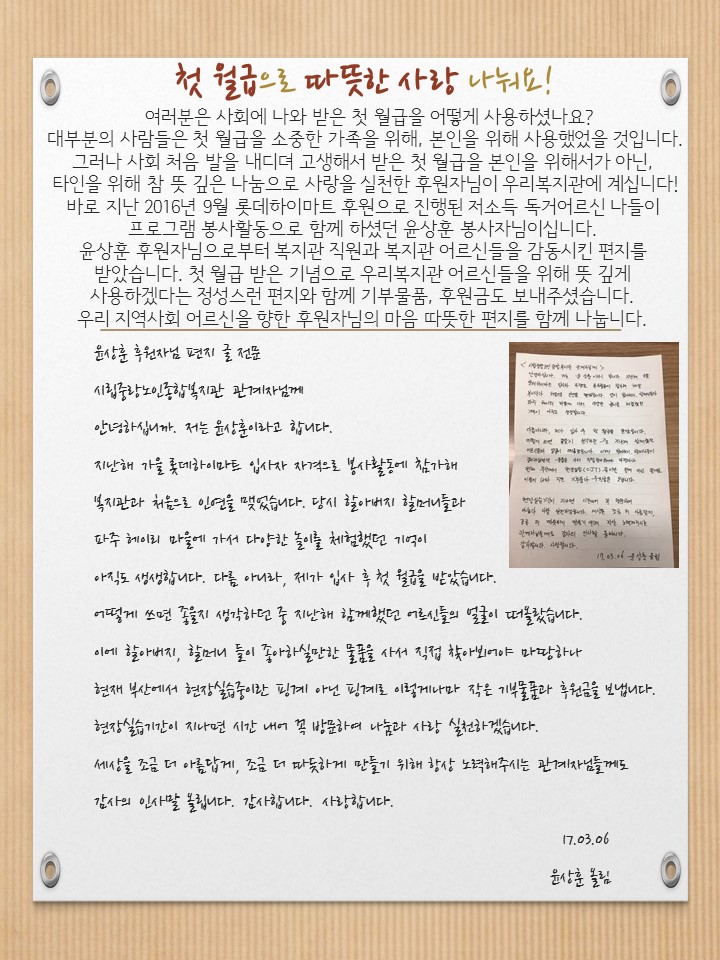 첫 월급으로 따뜻한 사랑 나눠요!
여러분은 사회에 나와 받은 첫 월급을 어떻게 사용하셨나요?
대부분의 사람들은 첫 월급을 소중한 가족을 위해, 본인을 위해 사용했었을 것입니다.
그러나 사회 처음 발을 내디뎌 고생해서 받은 첫 월급을 본인을 위해서가 아닌,
타인을 위해 참 뜻 깊은 나눔으로 사랑을 실천한 후원자님이 우리복지관에 계십니다!
바로 지난 2016년 9월 롯데하이마트 후원으로 진행된 저소득 독거어르신 나들이
프로그램 봉사활동으로 함께 하셨던 윤상훈 봉사자님이십니다.
윤상훈 후원자님으로부터 복지관 직원과 복지관 어르신들을 감동시킨 편지를
받았습니다. 첫 월급 받은 기념으로 우리복지관 어르신들을 위해 뜻 깊게
사용하겠다는 정성스런 편지와 함께 기부물품, 후원금도 보내주셨습니다.
우리 지역사회 어르신을 향한 후원자님의 마음 따뜻한 편지를 함께 나눕니다.
윤상훈 후원자님 편지 글 전문
시립중랑노인종합복지관 관계자님께
안녕하십니까. 저는 윤상훈이라고 합니다.
지난해 가을 롯데하이마트 입사자 자격으로 봉사활동에 참가해
복지관과 처음으로 인연을 맺었습니다. 당시 할아버지 할머니들과
파주 헤이리 마을에 가서 다양한 놀이를 체험했던 기억이
아직도 생생합니다. 다름 아니라, 제가 입사 후 첫 월급을 받았습니다.
어떻게 쓰면 좋을지 생각하던 중 지난해 함께했던 어르신들의 얼굴이 떠올랐습니다.
이에 할아버지, 할머니 들이 좋아하실만한 물품을 사서 직접 찾아뵈어야 마땅하나
현재 부산에서 현장실습중이란 핑계 아닌 핑계로 이렇게나마 작은 기부물품과 후원금을 보냅니다.
현장실습기간이 지나면 시간 내어 꼭 방문하여 나눔과 사랑 실천하겠습니다.
세상을 조금 더 아름답게, 조금 더 따듯하게 만들기 위해 항상 노력해주시는 관계자님들께도
감사의 인사말 올립니다. 감사합니다. 사랑합니다.
17.03.06
윤상훈 올림